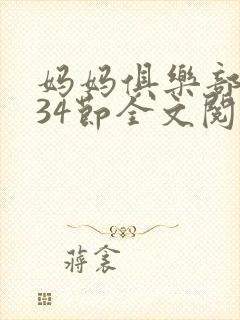 妈妈俱樂部
34節全文閱
蔣衾